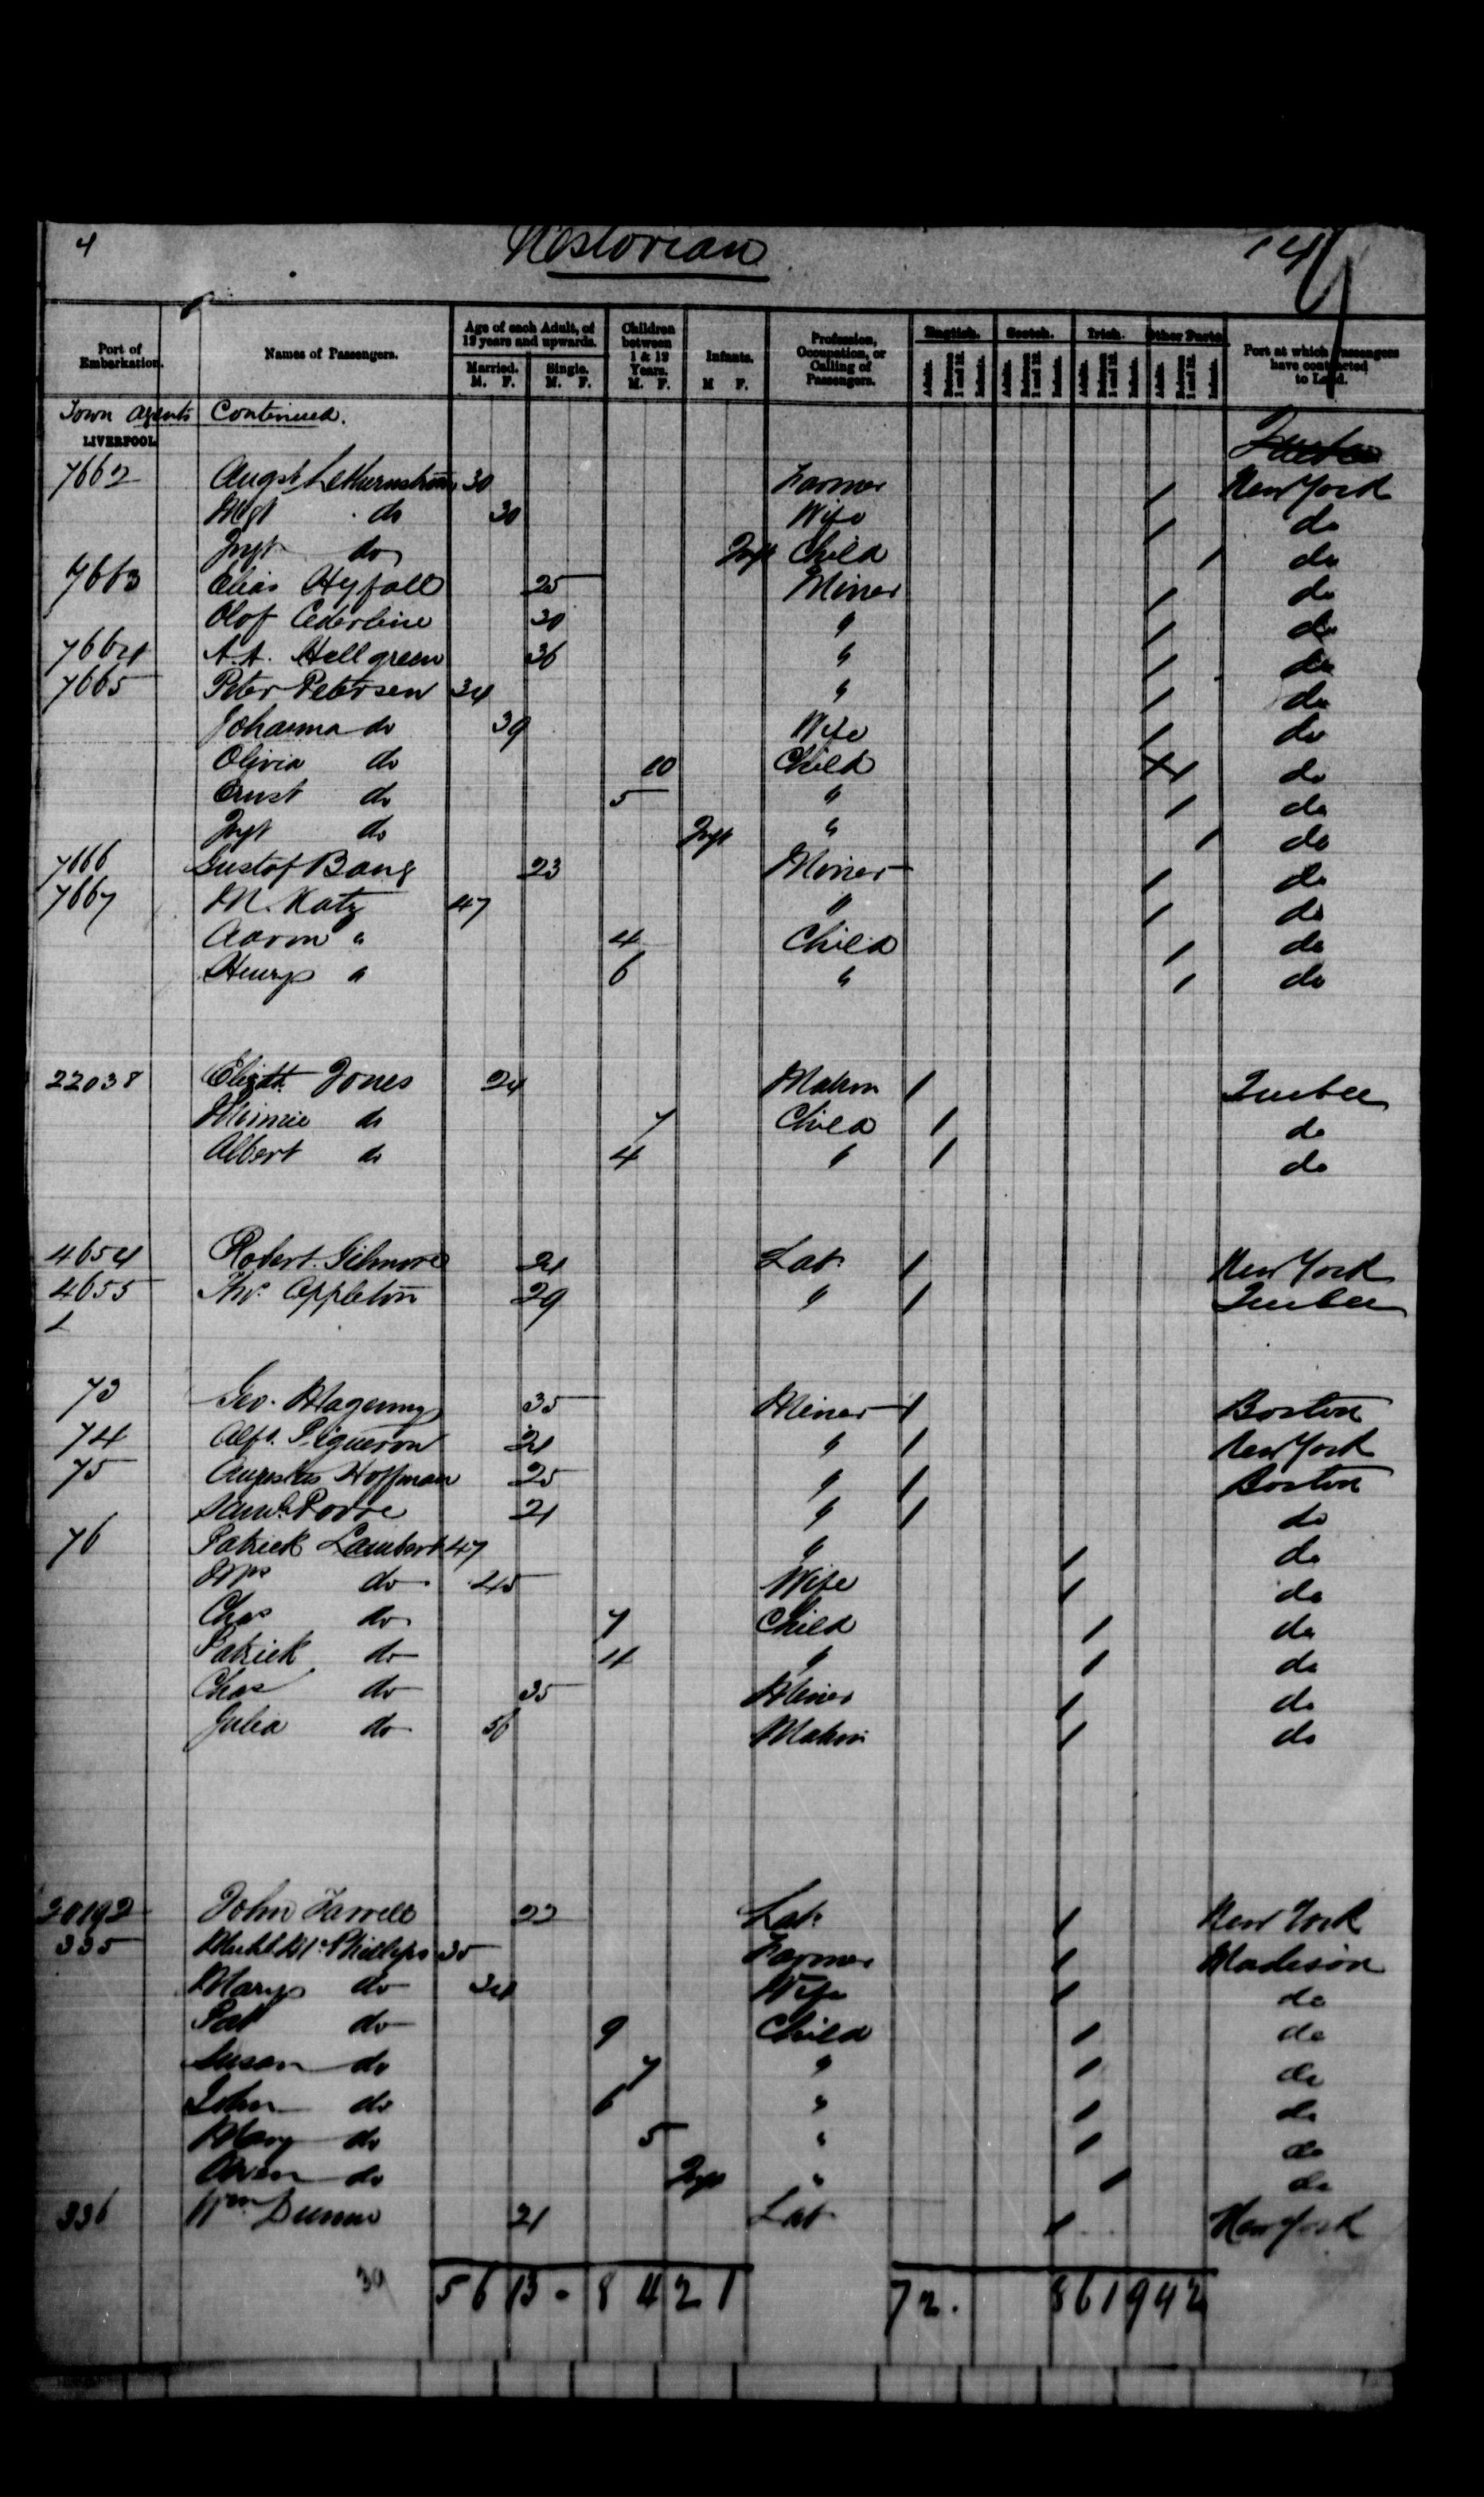 4 Nestorian 14
Port of Embarkation. Names of Passengers. Age of each Adult, of 12 years and upwards. Married. M. F. Single. M. F. Children between 1 & 12 Years. M. F. Infants. M F. Profession, Occupation, or Calling of Passengers. English. Adults. Between 1 and 12. Infants. Scotch. Adults. Between 1 and 12. Infants. Irish. Adults. Between 1 and 12. Infants. Other Parts. Adults. Between 1 and 12. Infants. Port at which Passengers have contracted to Land.
Town Agents Continued.
LIVERPOOL
7662 Augst 30 Farmer 1 New York
Mgt do 30 Wife 1 do
Inft do Inft Child 1 do
7663 Elias Hyfall 25 Miner 1 do
Olof Cederline 30 " 1 do
7664 A.A. Hellgreen 36 " 1 do
7665 Peter Petersen 34 " 1 do
Johanna do 39 Wife 1 do
Olivia do 10 Child 1 do
Ernst do 5 " 1 do
Inft do Inft " 1 do
7666 Gustof Bang 23 Miner 1 do
7667 M. Katz 47 " 1 do
Aaron " 4 Child 1 do
Henry " 6 " 1 do
22038 Elizth Jones 24 Matron 1 Quebec
Minnie do 7 Child 1 do
Albert do 4 " 1 do
4654 Robert Gilmore 21 Lab 1 New York
4655 Thos. Appleton 29 " 1 Quebec
1
73 Geo. 35 Miner 1 Boston
74 Alfd. Pigueron 21 " 1 New York
75 Augustus Hoffman 25 " 1 Boston
Saml. 21 " 1 do
76 Patrick Lambert 47 " 1 do
Mrs do 45 Wife 1 do
Chas do 7 Child 1 do
Patrick do 4 " 1 do
Chas do 35 Miner 1 do
Julia do 56 Matron 1 do
20192 John Farrell 22 Lab 1 New York
335 Michl Mc Phillips 35 Farmer 1 Madison
Mary do 34 Wife 1 do
Pat do 9 Child 1 do
Susan do 7 " 1 do
John do 6 " 1 do
Mary do 5 " 1 do
Owen do Inft " 1 do
336 Wm Dunne 21 Lab 1 New York
39 5 6 13 - 8 4 2 1 7 2 . 8 6 1 9 4 2